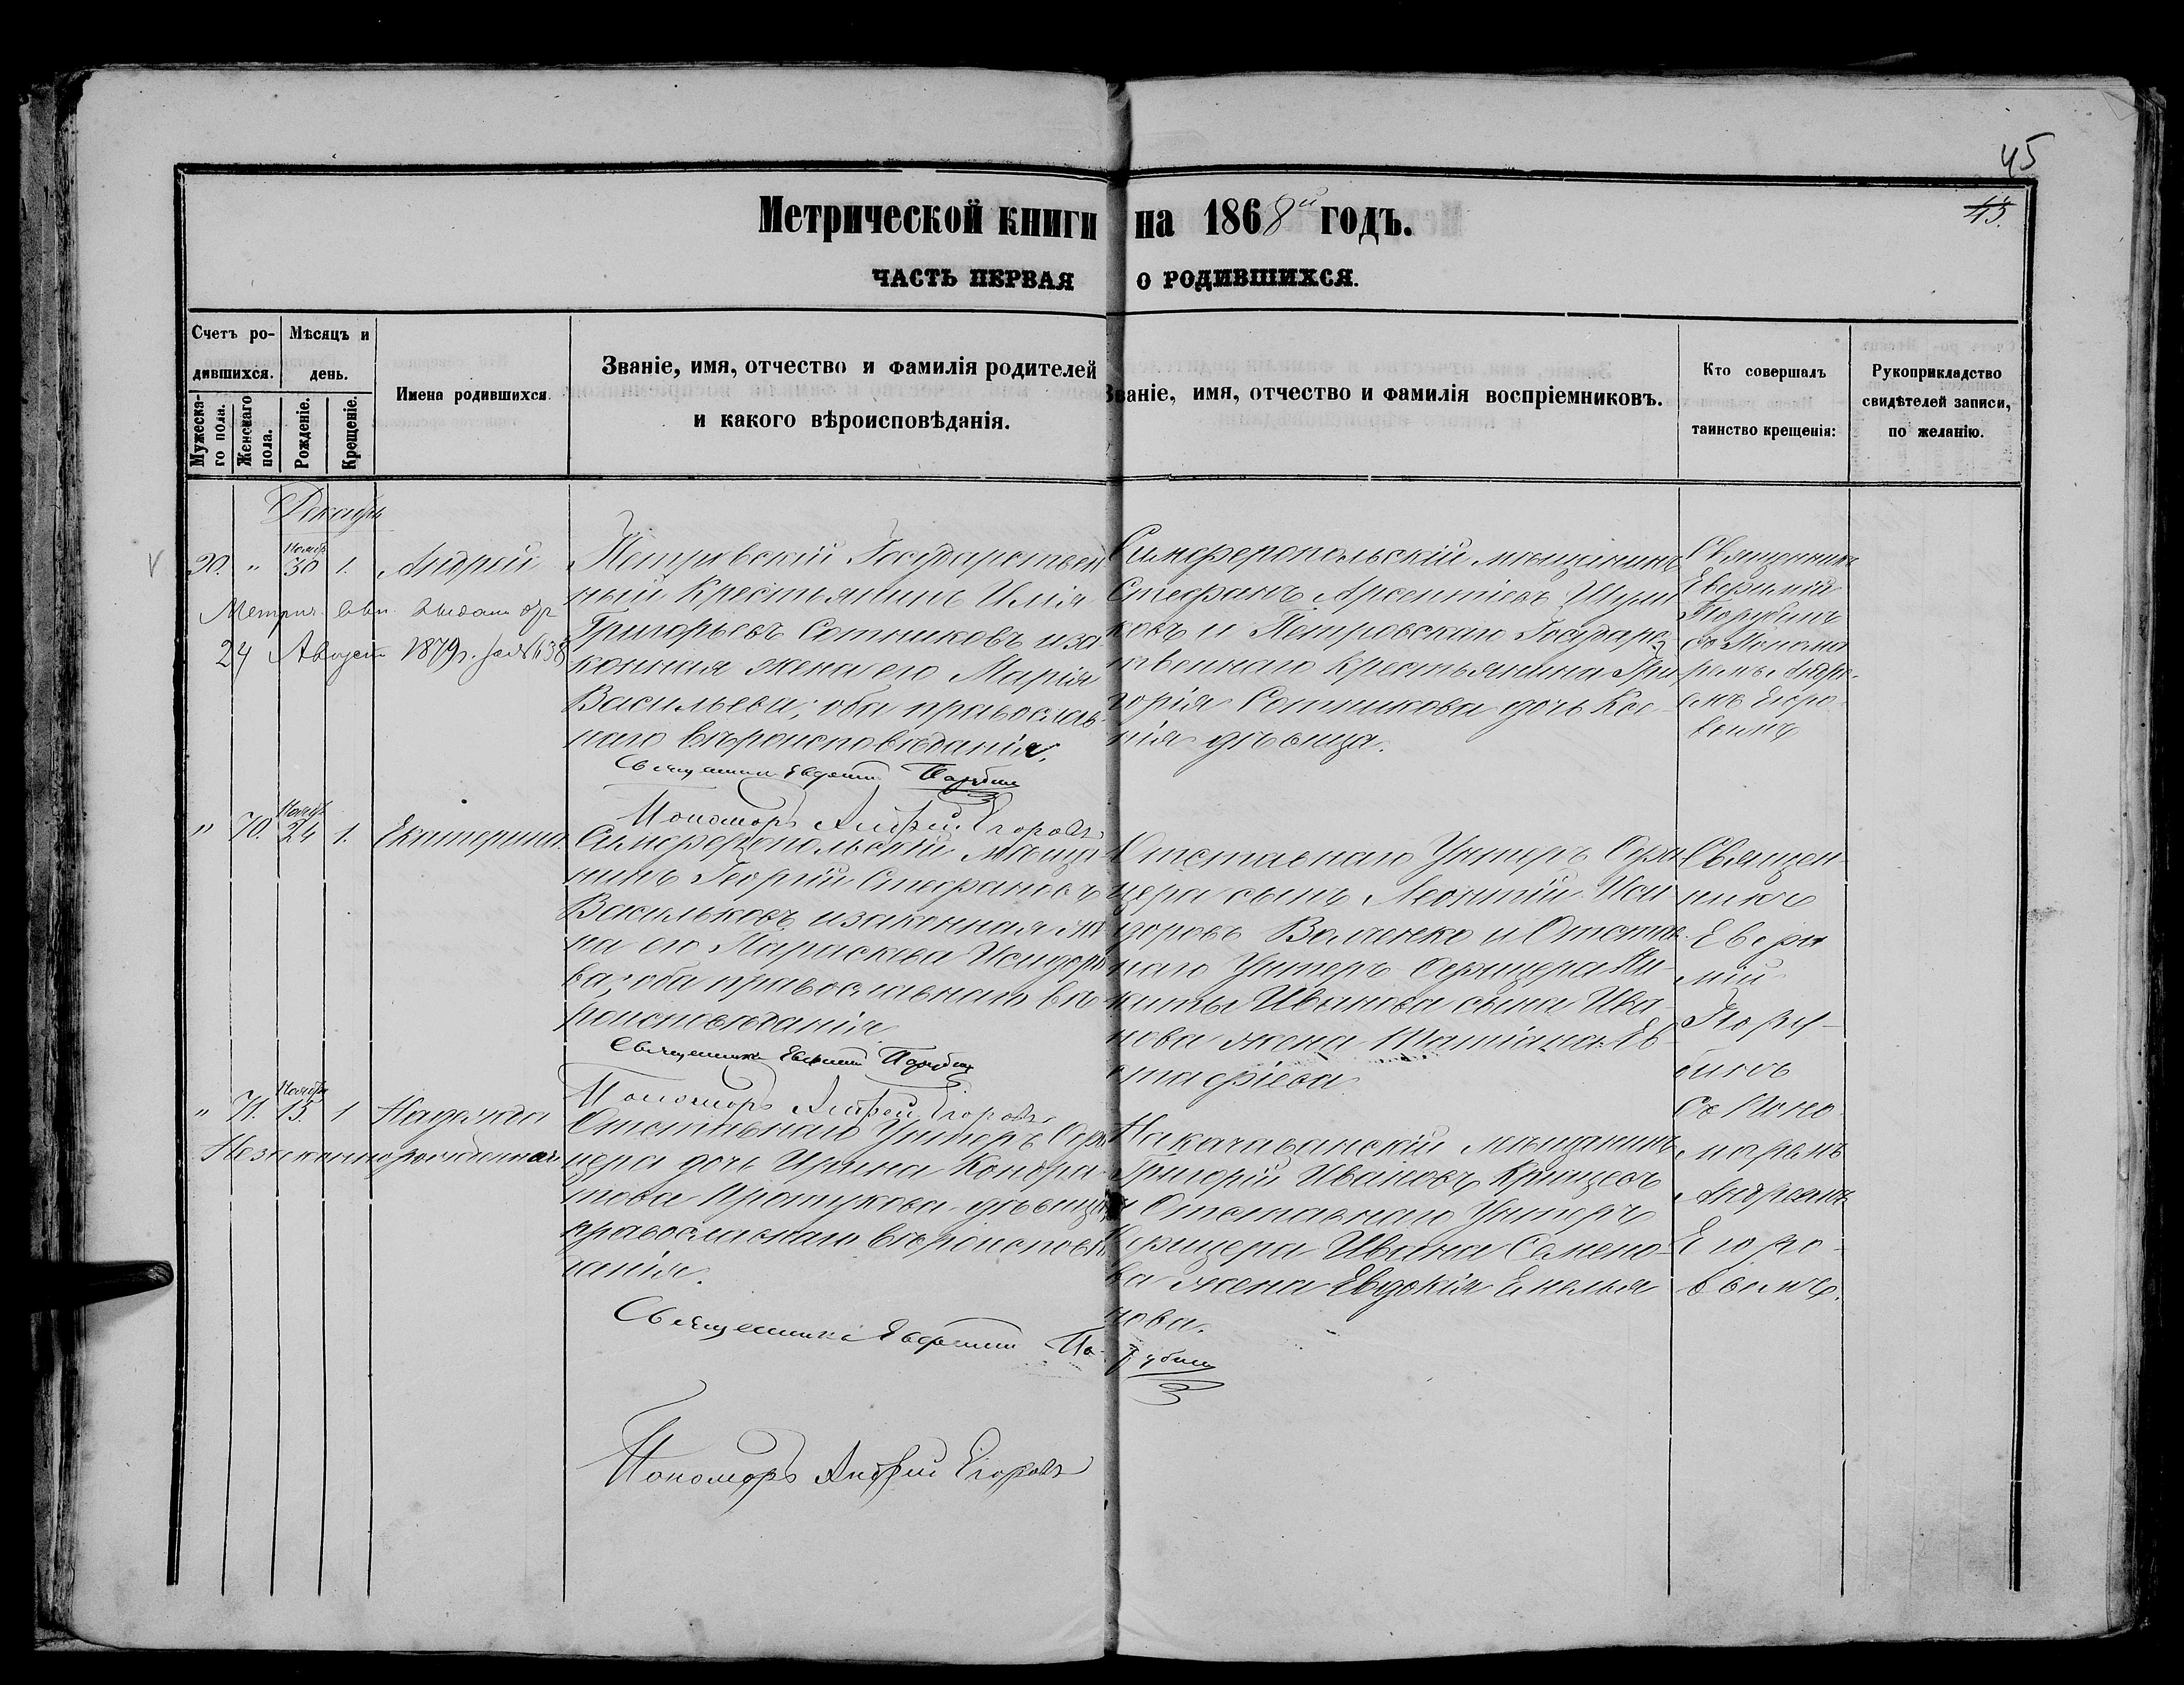 45
13.
Метрической книги на 1868й годъ.
ЧАСТЬ ПЕРВАЯ О РОДИВШИХСЯ.
Счетъ ро-
дившихся.
Мѣсяцъ и
день.
Мужеска-
го пола.
Женскаго
пола.
Рожденіе.
Крещеніе.
Имена родившихся.
Званіе, имя, отчество и фамилія родителей
и какого вѣроисповѣданія.
Званіе, имя, отчество и фамилія воспріемниковъ.
Кто совершалъ
таинство крещенія:
Рукоприкладство
свидѣтелей записи,
по желанію.
Декабрь
90. " Ноябр. 30 1. Андрей
Метрич. выдано
24 Август 1879 г. за № 638
Петровскій Государствен
ный Крестьянинъ Илія
Григорьевъ Сотниковъ и за-
конная жена его Марія
Васильева; оба православ-
наго вѣроисповѣданія.
Священникъ Евфимій Порубинъ
Пономарь Андрей Егоровъ
Симферопольскій мѣщанинъ
Стефанъ Арсентіевъ
ковъ и Петровскаго Государс
твеннаго Крестьянина Гри
горія Сотникова дочь Ксе-
нія дѣвица.
Священникъ
Евфимій
Порубинъ
съ Понома
ремъ Андре-
емъ Егоро-
вымъ
" 70. Ноябр. 24 1. Екатерина.
Симферопольскій мѣща-
нинъ Георгій Стефановъ
Васильковъ и законная же
на его Параскева Исидоро
ва, оба православнаго вѣ-
роисповѣданія
Священникъ Евфимій Порубинъ
Пономарь Андрей Егоровъ
Отставнаго Унтеръ Офи
цера сынъ Леонтій Иси-
доровъ и Отстав
наго Унтеръ Офицера Ни-
киты Иванова сына Ива-
нова жена Татіана Ев-
стафіева
Священ-
никъ
Евфи
мій
Пору-
бинъ
съ Поно-
маремъ
Андреемъ
Егоро-
вымъ.
" 71. Ноябр. 13. 1 Надежда
Незаконнорожденная
Отставнаго Унтеръ Офи
цера дочь Ирина Кондра-
това дѣвица
православнаго вѣроисповѣ
данія.
Священникъ Евфимій Порубинъ
Пономарь Андрей Егоровъ
мѣщанинъ
Григорій Ивановъ
и Отставнаго Унтеръ
Офицера Ивана Семено-
ва жена Евдокія Емелья
нова.